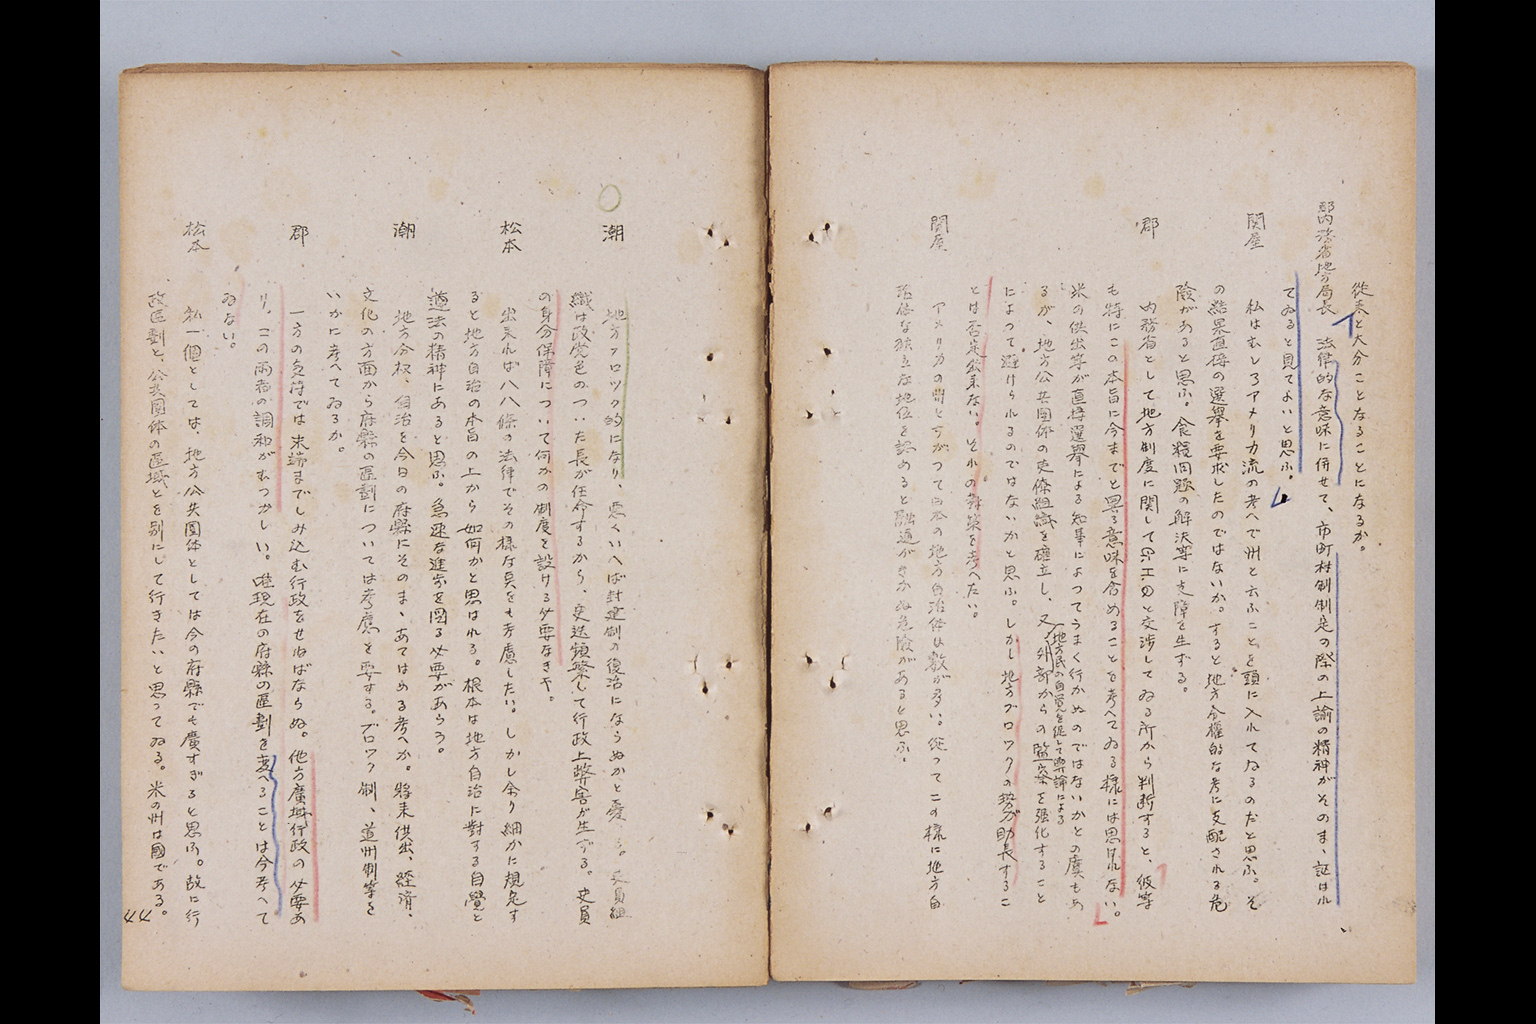 従来と大分ことなることになるか。
郡内務省地方局長 法律的な意味に併せて、市町村制制定の際の上諭の精神がそのまゝ謳はれ
てゐると見てよいと思ふ。
関屋 私はむしろアメリカ流の考へで州と云ふことを頭に入れてゐるのだと思ふ。そ
の結果直接の選挙を要求したのではないか。すると地方分権的な考に支配される危
険があると思ふ。食糧問題の解決等に支障を生ずる。
郡 内務省として地方制度に関してGHQと交渉してゐる所から判断すると、彼等
も特にこの本旨に今までと異る意味を含めることを考へてゐる様には思はれない。
米の供出等が直接選挙による知事によつてうまく行かぬのではないかとの虞もあ
るが、地方公共団体の吏僚組織を確立し、又外部からの監察を強化すること
地方民の自覚を促して輿論による
によつて避けられるのではないかと思ふ。しかし地方ブロツクの勢が助長するこ
とは否定出来ない。それの対策を考へたい。
関屋 アメリカの州とちがつて日本の地方自治体は数が多い。従つてこの様に地方自
治体な独立な地位を認めると融通がきかぬ危険があると思ふ。
潮 地方ブロツク的になり、悪くいへば封建制の復活にならぬかと憂へる。吏員組
織は政党色のついた長が任命するから、更迭頻繁して行政上弊害が生ずる。吏員
の身分保障について何かの制度を設ける必要なきや。
松本 出来れば八八條の法律でその様な点をも考慮したい。しかし余り細かに規定す
ると地方自治の本旨の上から如何かと思はれる。根本は地方自治に對する自覺と
遵法の精神にあると思ふ。急速な進歩を図る必要があらう。
潮 地方分权、自治を今日の府縣にそのまゝあてはめる考へか。将来供出、経済、
文化の方面から府縣の区劃については考慮を要する。ブロツク制、道州制等を
いかに考へてゐるか。
郡 一方の支障では末端までしみ込む行政をせねばならぬ。他方廣域行政の必要あ
り。この両者の調和がむつかしい。唯現在の府縣の区劃を変へることは今考へて
ゐない。
松本 私一個としては、地方公共團体としては今の府縣でも廣すぎると思ふ。故に行
政区劃と、公共團体の區域とを別にして行きたいと思つてゐる。米の州は國である。
44